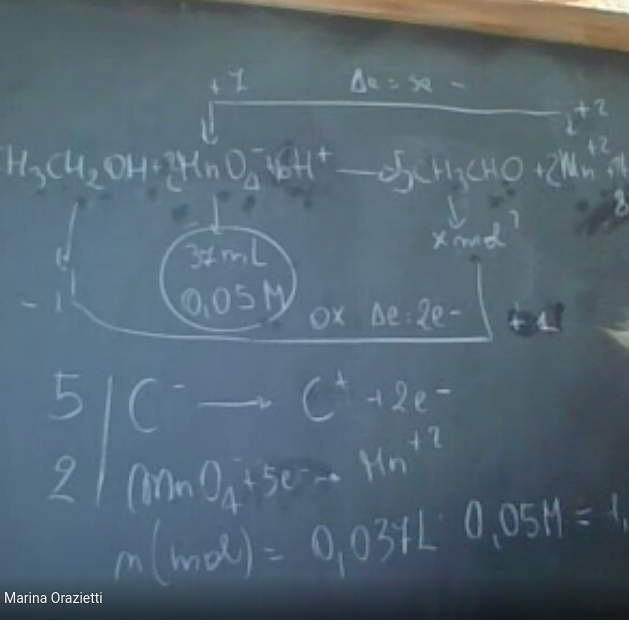 +7 Δe = 5e -
+2
H₃CH₂OH + 2MnO₄⁻ + 6H⁺ → 5CH₃CHO + 2Mn⁺²
8
37mL
0,05M
x mol?
- 1 ox Δe: 2e- + 1
5 | C⁻ → C⁺ + 2e⁻
2 | MnO₄⁻ + 5e⁻ → Mn⁺²
n(mol) = 0,037L · 0,05M = 1,
Marina Orazietti